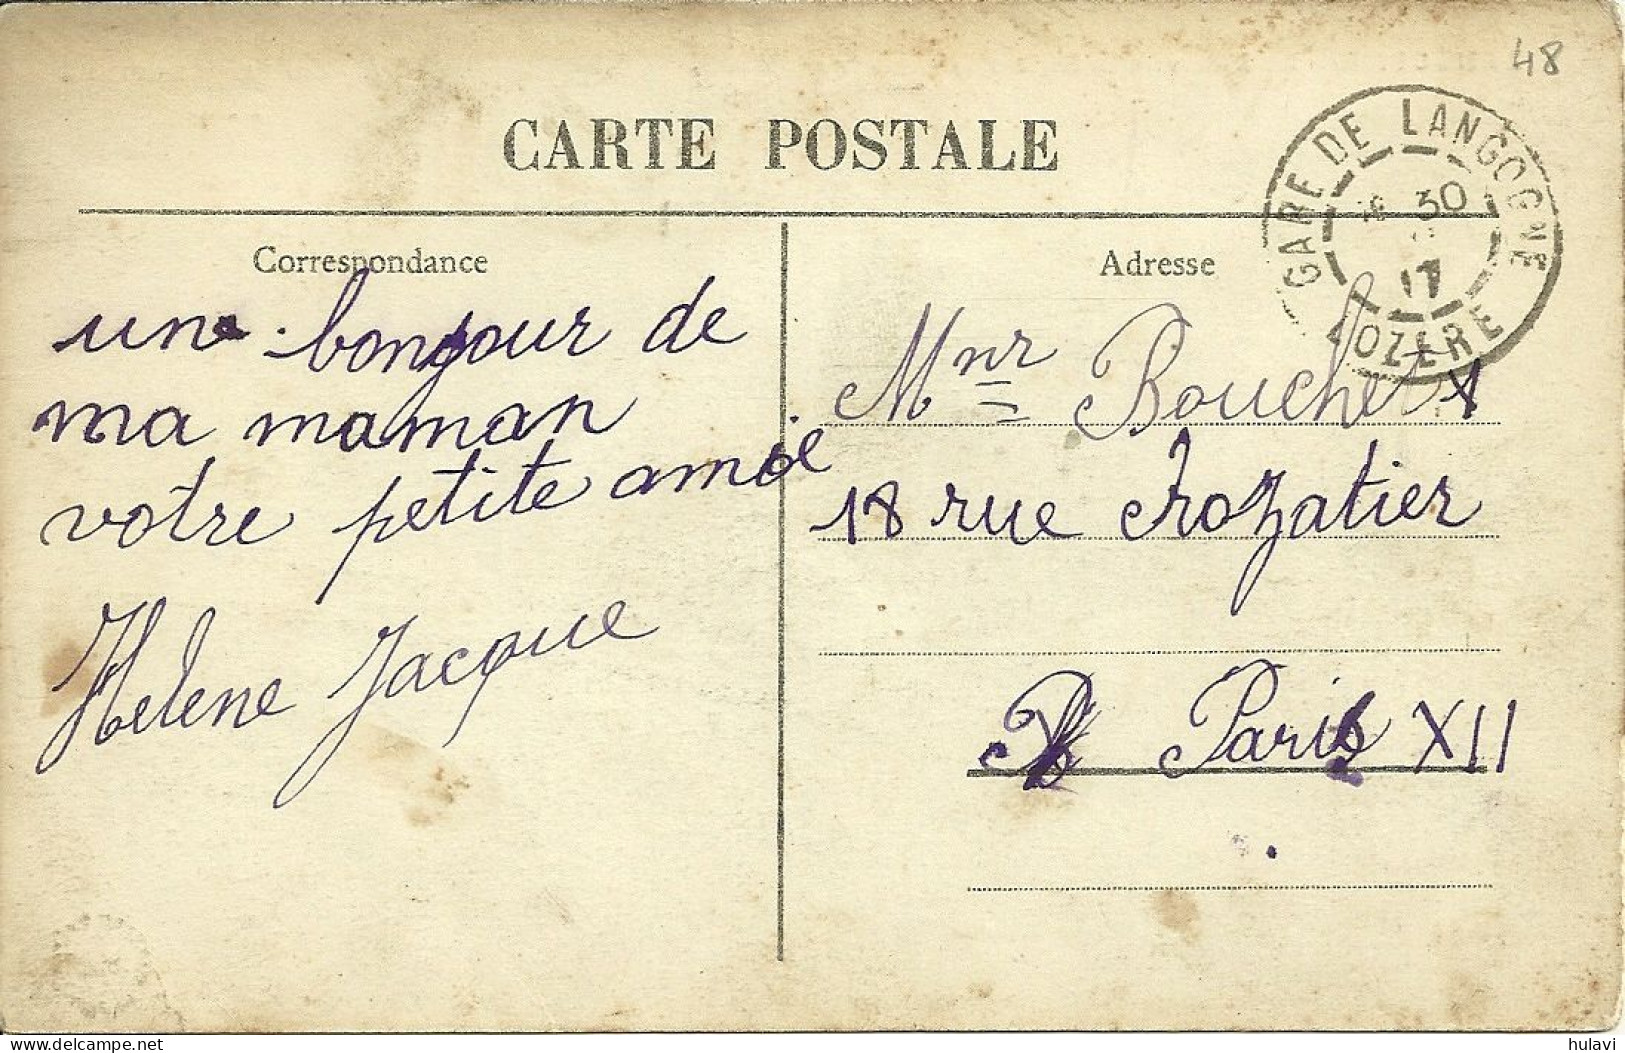 48
CARTE POSTALE
GARE DE LANGOGNE
30
17
LOZERE
Correspondance
une bonjour de
ma maman
votre petite amie
Helene Jacque
Adresse
Mnr Bouchet
18 rue Crozatier
Paris XII
delcampe.net
hulavi